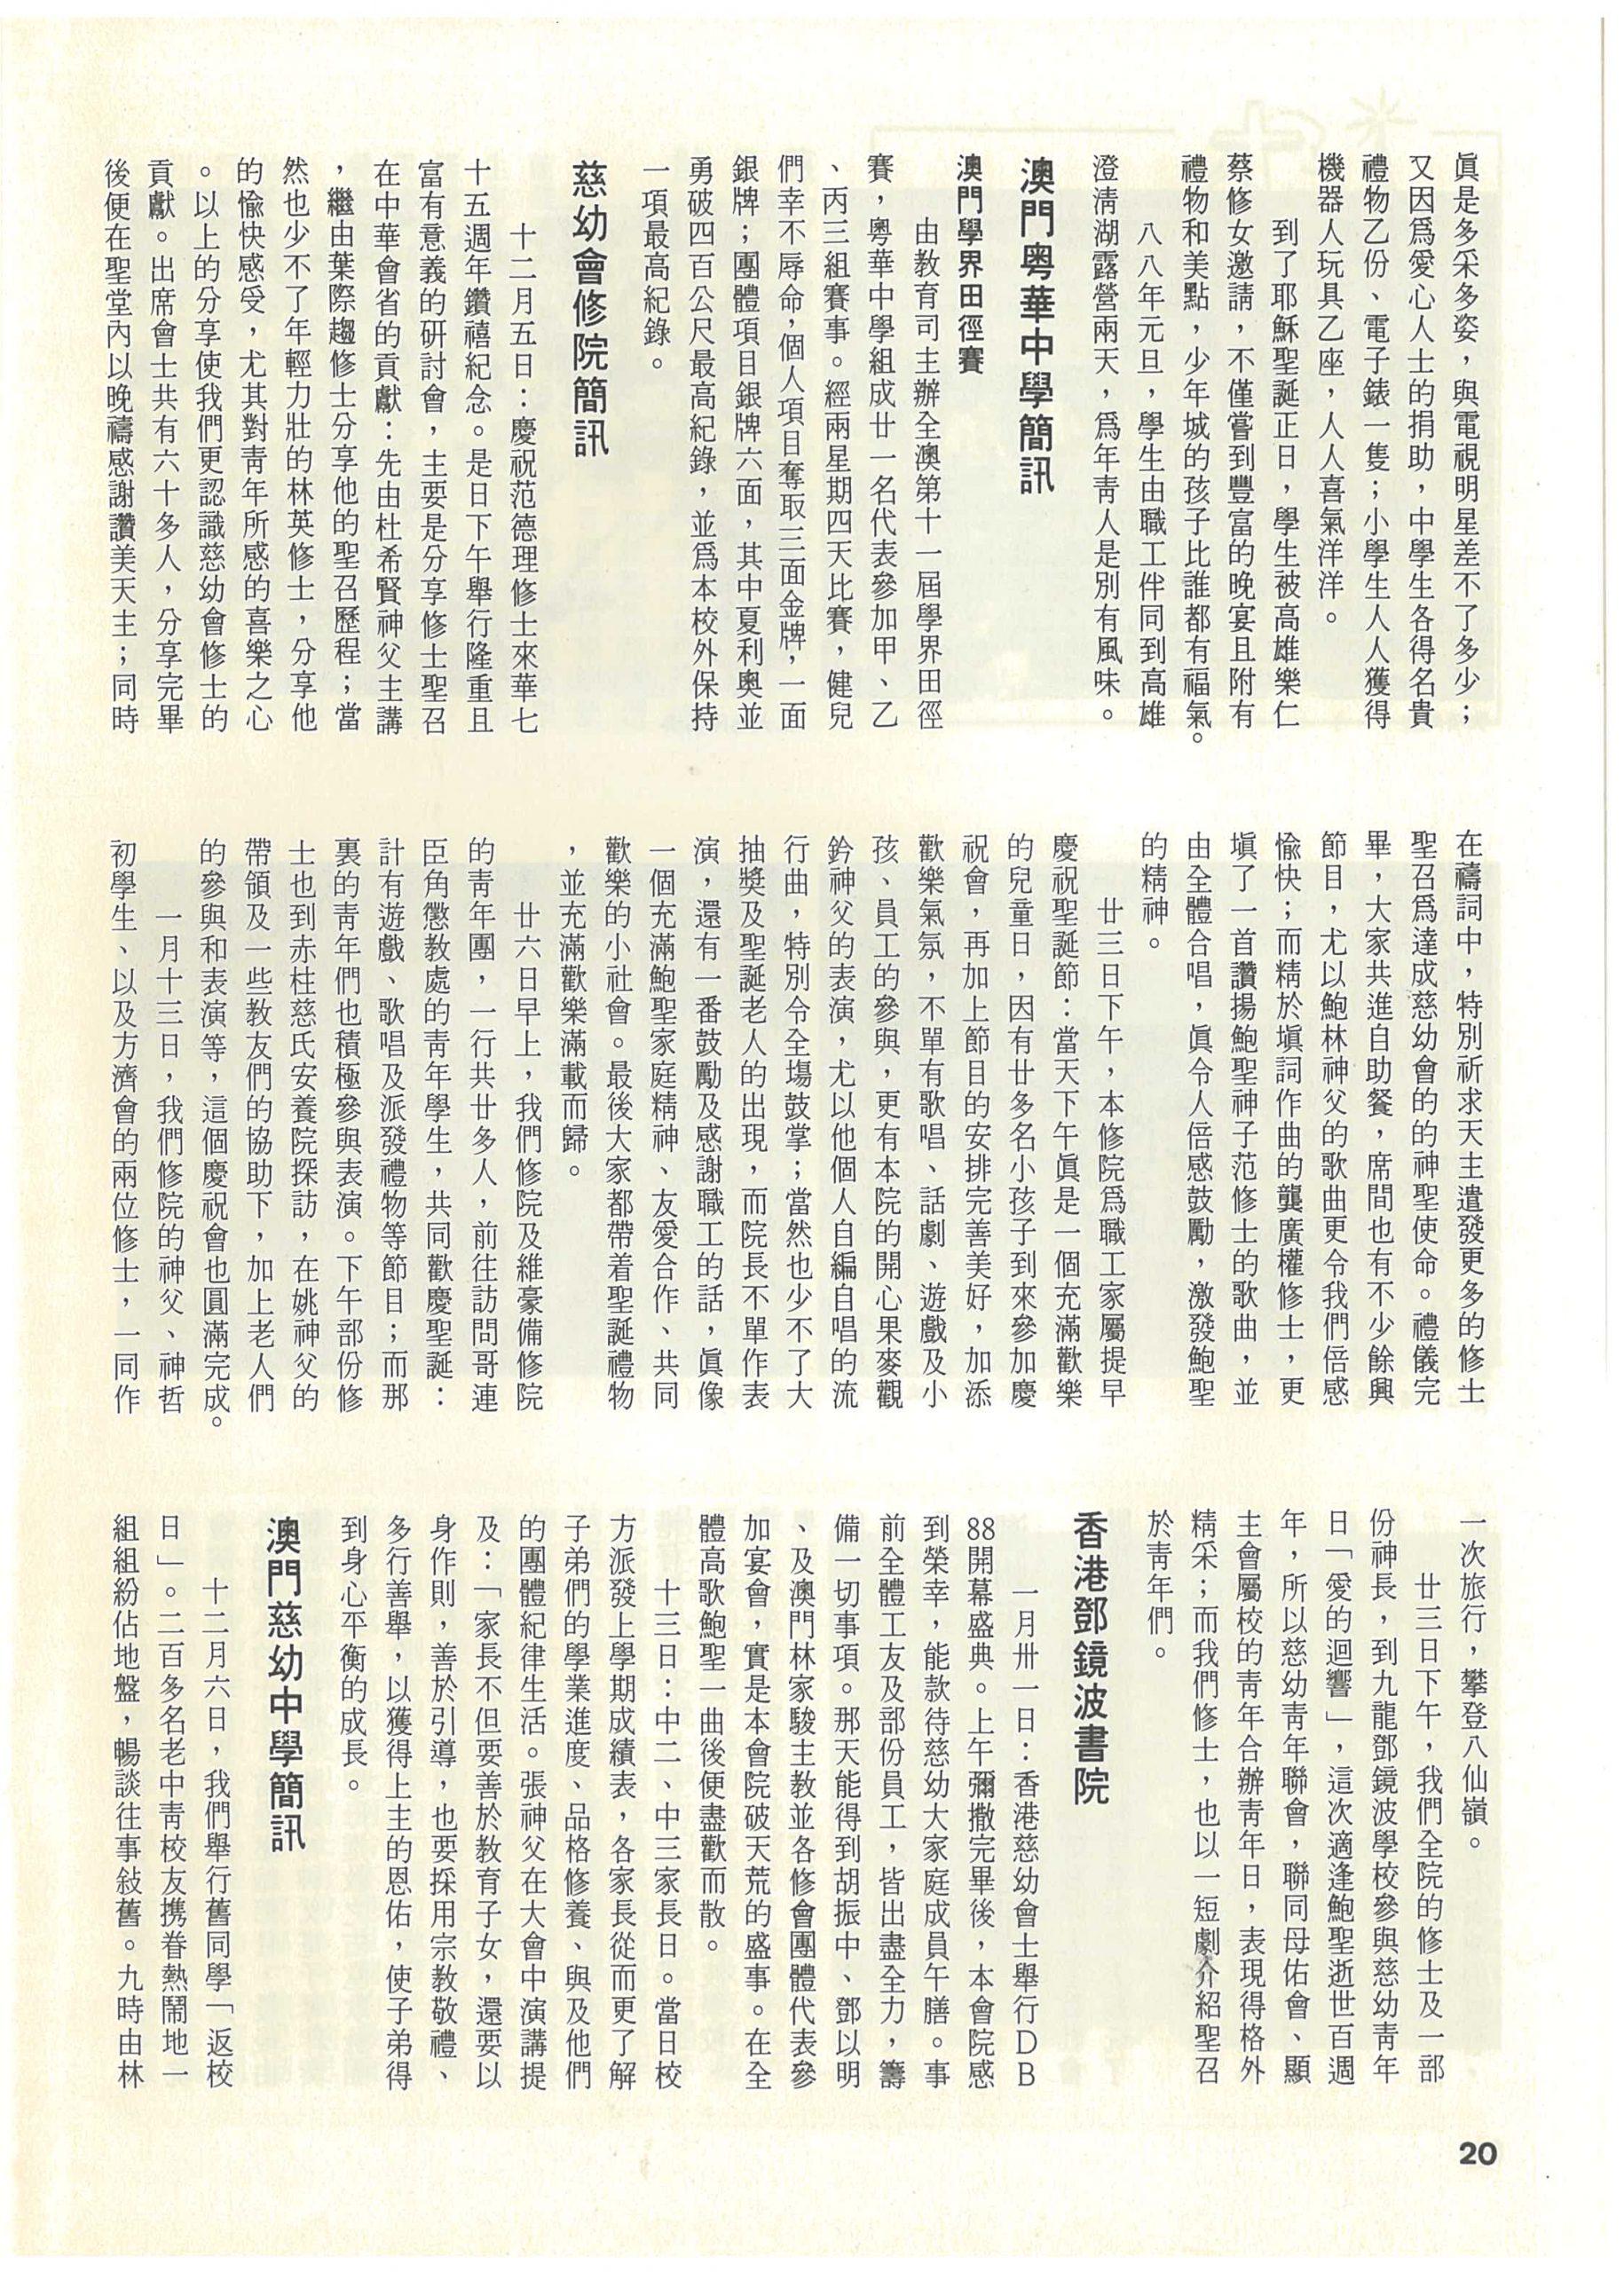 眞是多采多姿，與電視明星差不了多少；
又因爲愛心人士的捐助，中學生各得名貴
禮物乙份、電子錶一隻；小學生人人獲得
機器人玩具乙座，人人喜氣洋洋。
到了耶穌聖誕正日，學生被高雄樂仁
蔡修女邀請，不僅嘗到豐富的晚宴且附有
禮物和美點，少年城的孩子比誰都有福氣。
八八年元旦，學生由職工伴同到高雄
澄淸湖露營兩天，爲年靑人是別有風味。
澳門粤華中學簡訊
澳門學界田徑賽
由教育司主辦全澳第十一屆學界田徑
賽，粤華中學組成廿一名代表參加甲、乙
、丙三組賽事。經兩星期四天比賽，健兒
們幸不辱命，個人項目奪取三面金牌，一面
銀牌；團體項目銀牌六面，其中夏利奧並
勇破四百公尺最高紀錄，並爲本校外保持
一項最高紀錄。
慈幼會修院簡訊
十二月五日：慶祝范德理修士來華七
十五週年鑽禧紀念。是日下午舉行隆重且
富有意義的硏討會，主要是分享修士聖召
在中華會省的貢獻：先由杜希賢神父主講
，繼由葉際趨修士分享他的聖召歷程；當
然也少不了年輕力壯的林英修士，分享他
的愉快感受，尤其對靑年所感的喜樂之心
。以上的分享使我們更認識慈幼會修士的
貢獻。出席會士共有六十多人，分享完畢
後便在聖堂內以晚禱感謝讚美天主；同時
在禱詞中，特別祈求天主遣發更多的修士
聖召爲達成慈幼會的的神聖使命。禮儀完
畢，大家共進自助餐，席間也有不少餘興
節目，尤以鮑林神父的歌曲更令我們倍感
愉快；而精於塡詞作曲的龔廣權修士，更
塡了一首讚揚鮑聖神子范修士的歌曲，並
由全體合唱，眞令人倍感鼓勵，激發鮑聖
的精神。
廿三日下午，本修院爲職工家屬提早
慶祝聖誕節：當天下午眞是一個充滿歡樂
的兒童日，因有廿多名小孩子到來參加慶
祝會，再加上節目的安排完善美好，加添
歡樂氣氛，不單有歌唱、話劇、遊戲及小
孩、員工的參與，更有本院的開心果麥觀
鈐神父的表演，尤以他個人自編自唱的流
行曲，特別令全場鼓掌；當然也少不了大
抽獎及聖誕老人的出現，而院長不單作表
演，還有一番鼓勵及感謝職工的話，眞像
一個充滿鮑聖家庭精神、友愛合作、共同
歡樂的小社會。最後大家都帶着聖誕禮物
，並充滿歡樂滿載而歸。
廿六日早上，我們修院及維豪備修院
的靑年團，一行共廿多人，前往訪問哥連
臣角懲教處的靑年學生，共同歡慶聖誕：
計有遊戲、歌唱及派發禮物等節目；而那
裏的靑年們也積極參與表演。下午部份修
士也到赤柱慈氏安養院探訪，在姚神父的
帶領及一些教友們的協助下，加上老人們
的參與和表演等，這個慶祝會也圓滿完成。
一月十三日，我們修院的神父、神哲
初學生、以及方濟會的兩位修士，一同作
一次旅行，攀登八仙嶺。
廿三日下午，我們全院的修士及一部
份神長，到九龍鄧鏡波學校參與慈幼靑年
日「愛的迴響」，這次適逢鮑聖逝世百週
年，所以慈幼靑年聯會，聯同母佑會、顯
主會屬校的靑年合辦靑年日，表現得格外
精采；而我們修士，也以一短劇介紹聖召
於靑年們。
香港鄧鏡波書院
一月卅一日：香港慈幼會士舉行DB
88開幕盛典。上午彌撒完畢後，本會院感
到榮幸，能款待慈幼大家庭成員午膳。事
前全體工友及部份員工，皆出盡全力，籌
備一切事項。那天能得到胡振中、鄧以明
、及澳門林家駿主教並各修會團體代表參
加宴會，實是本會院破天荒的盛事。在全
體高歌鮑聖一曲後便盡歡而散。
十三日：中二、中三家長日。當日校
方派發上學期成績表，各家長從而更了解
子弟們的學業進度、品格修養、與及他們
的團體紀律生活。張神父在大會中演講提
及：「家長不但要善於教育子女，還要以
身作則，善於引導，也要採用宗教敬禮、
多行善舉，以獲得上主的恩佑，使子弟得
到身心平衡的成長。
澳門慈幼中學簡訊
十二月六日，我們舉行舊同學「返校
日」。二百多名老中靑校友携眷熱鬧地一
組組紛佔地盤，暢談往事敍舊。九時由林
20